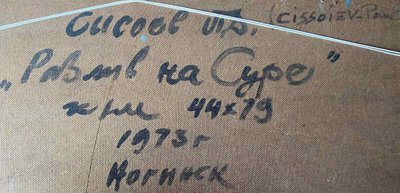 Сисоев П.Д. (CISSOIEV-Paul
„Розлив на Суре"
х/м 44х79
1973г
Ногинск